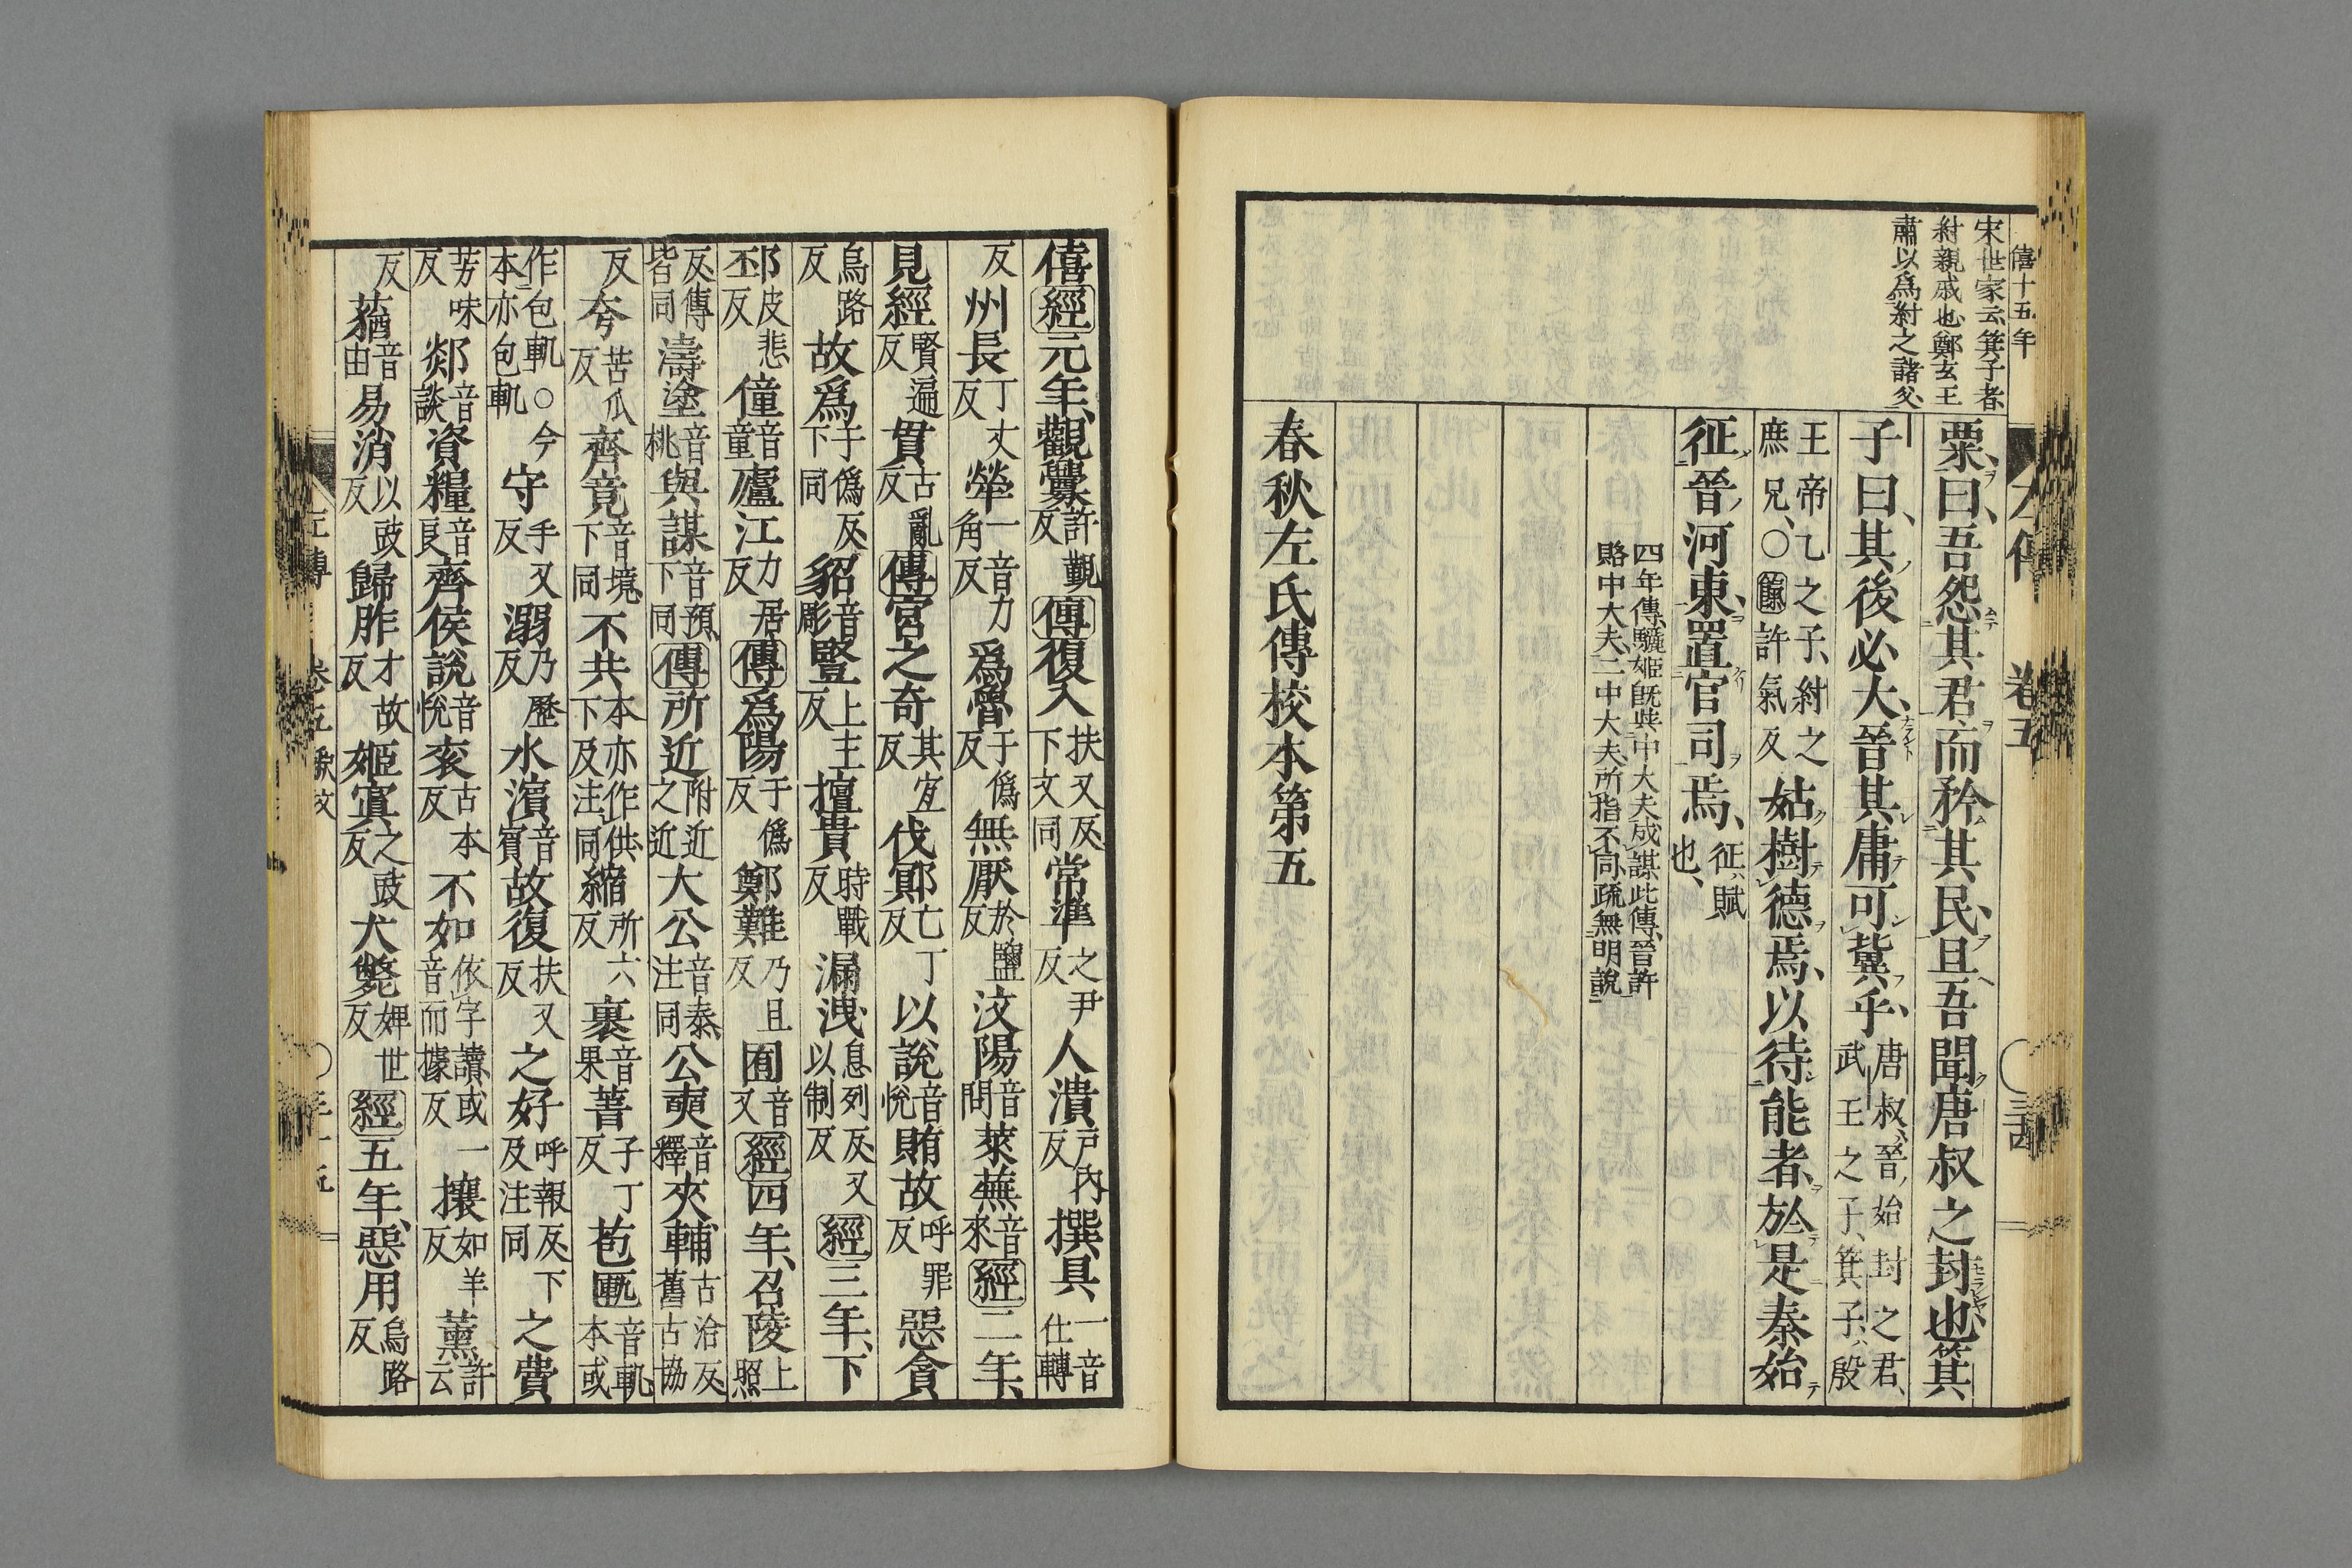 僖十五年
宋世家云箕子者
紂親戚也鄭玄王
肅以爲紂之諸父
粟曰吾怨其君而矜其民且吾聞唐叔之封也箕
子曰其後必大晉其庸可冀乎唐叔晉始封之君武王之子箕子殷
王帝乙之子紂之庶兄○餼許氣反姑樹德焉以待能者於是秦始
征晉河東置官司焉征賦也
四年傳驪姬既與中大夫成謀此傳晉許
賂中大夫二中大夫所指不同疏無明說
春秋左氏傳校本第五
僖經元年觀釁許覲反傳復入扶又反下文同常準之尹反人潰戶內反撰具一音仕轉
反州長丁丈反犖一音力角反爲魯于僞反無厭於鹽反汶陽音問萊蕪音來經二年
見經賢遍反貫古亂反傳宮之奇其宜反伐鄍亡丁反以說音悅賄故呼罪反惡貪
烏路反故爲于僞反下同貂音彫豎上主反擅貴時戰反漏洩息列反又以制反經三年下
邳皮悲反僮音童廬江力居反傳爲陽于僞反鄭難乃且反囿音又經四年召陵上照
反傳皆同濤塗音桃與謀音預下同傳所近附近之近大公音泰注同公奭音釋夾輔古洽反舊古協
反夸苦瓜反齊竟音境下同不共本亦作供下及注同縮所六反裹音果菁子丁反苞匭音軌本或
作包軌○今本亦包軌守手又反溺乃歷反水濱音賓故復扶又反之好呼報反下及注同之費
芳味反郯音談資糧音良齊侯說音悅衮古本反不如依字讀或一音而據反攘如羊反薰許云
反蕕音由易消以豉反歸胙才故反姬寘之豉反犬斃婢世反經五年惡用烏路反